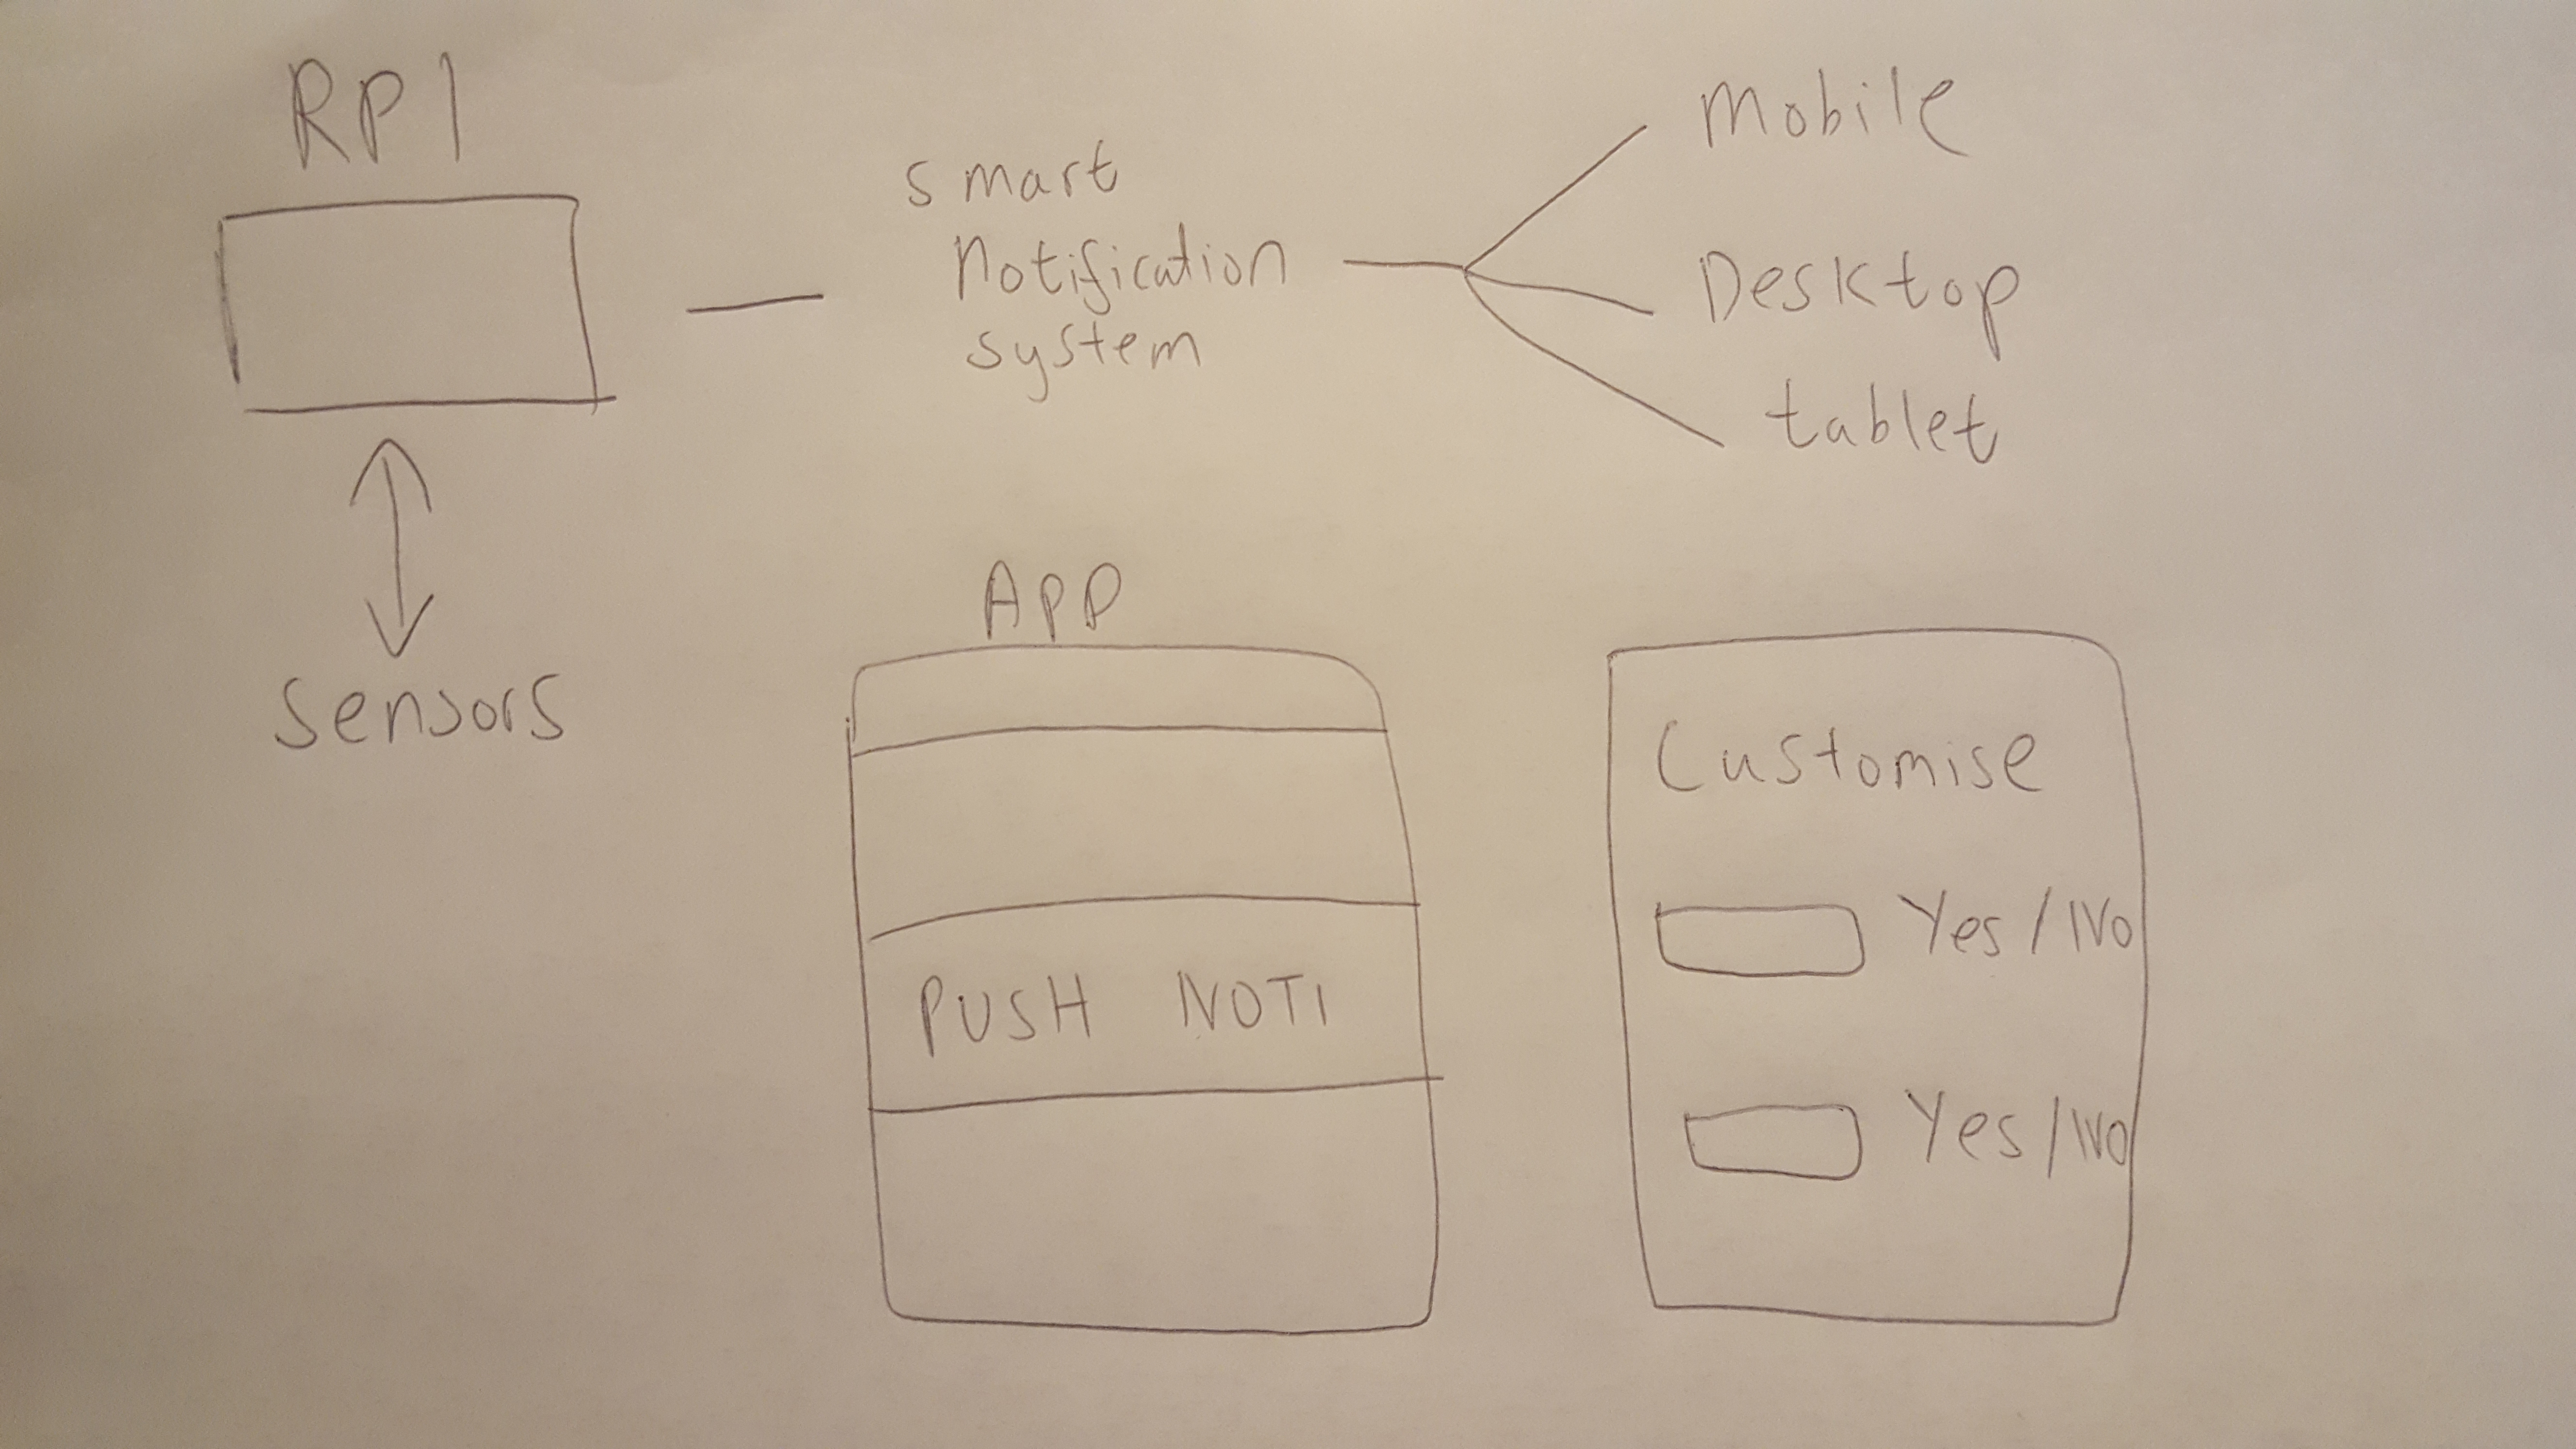 RPI
smart
Notification
system
Mobile
Desktop
tablet
Sensors
APP
PUSH NOTI
Customise
Yes/No
Yes/No